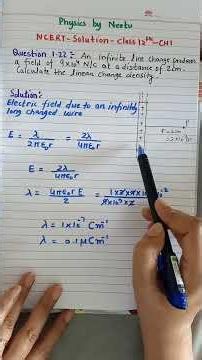 Physics by Neetu
NCERT-Solution-class 12th-CH1
Question 1.22:- An infinite line charge produces
a field of 9x10⁴ N/C at a distance of 2cm.
Calculate the linear charge density.
Solution:
Electric field due to an infinitely
long charged wire
E = λ/2πε₀r = 2λ/4πε₀r
E = 2λ/4πε₀r
λ = 4πε₀rE/2
λ = 1x10⁻⁷ Cm⁻¹
λ = 0.1μCm⁻¹